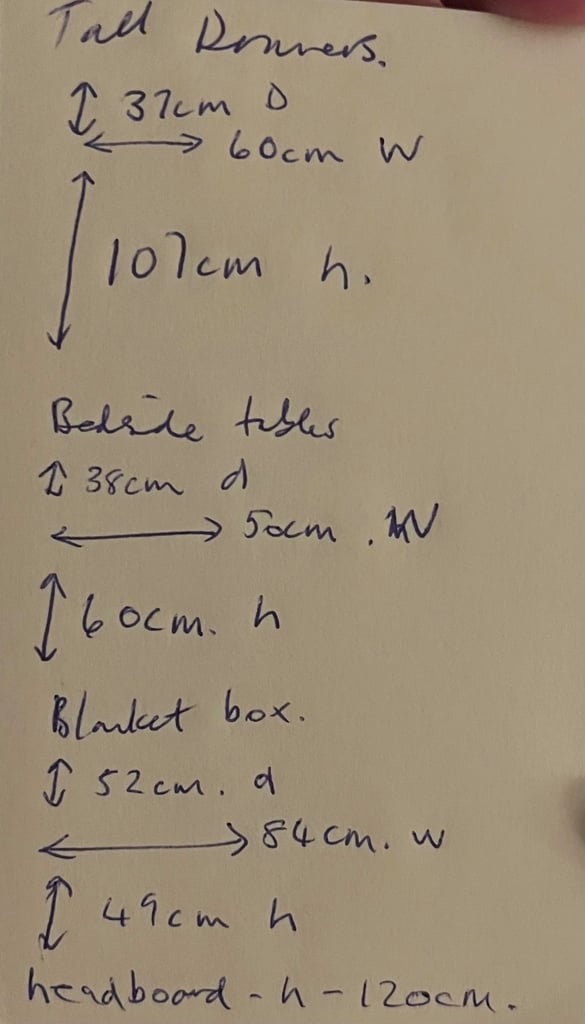 Tall Drawers.
37cm D
60cm W
107cm h.
Bedside tables
38cm d
50cm. W
60cm. h
Blanket box.
52cm. d
84cm. w
49cm h
headboard - h - 120cm.